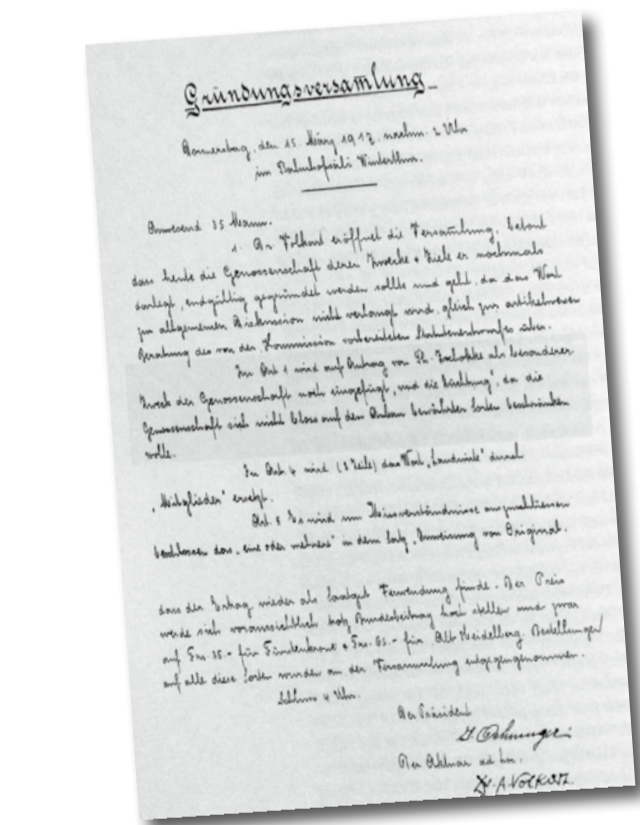 Gründungsversamlung
Donnerstag, den 15. März 1917, nachm. 2 Uhr
im Bahnhofsäli Winterthur.
Anwesend 35 Mann.
1. Dr. Volkart eröffnet die Versamlung, betont
dass heute die Genossenschaft deren Zwecke + Ziele er nochmals
darlegt, endgültig gegründet werden sollte und geht, da das Wort
zur allgemeinen Diskussion nicht verlangt wird, gleich zur artikelweisen
Beratung des von der Kommission vorbereiteten Statutenentwurfes über.
In Art 1 wird auf Antrag von als besonderer
Zweck der Genossenschaft noch eingefügt „und die Züchtung", da die
Genossenschaft sich nicht bloss auf den Anbau bewährter Sorten beschränken
wolle.
In Art. 4 wird (2 Zeile) das Wort „Landwirte" durch
„Mitglieder" ersetzt.
Art. 8 wird um Missverständnisse auszuschliessen
beschlossen das „eine oder mehrere" in dem Satz „Anweisung von Original.
dass der Ertrag wieder als Saatgut Verwendung finde. Der Preis
werde sich voraussichtlich trotz Bundesbeitrag hoch stellen und zwar
auf Frs. 35.- für Fürstenkrone + Frs. 65.- für Alt Heidelberg. Bestellungen
auf alle diese Sorten wurden an der Versammlung entgegengenommen.
Schluss 4 Uhr.
Der Präsident
Der Aktuar ad hoc.
Dr. A. VOLKART.